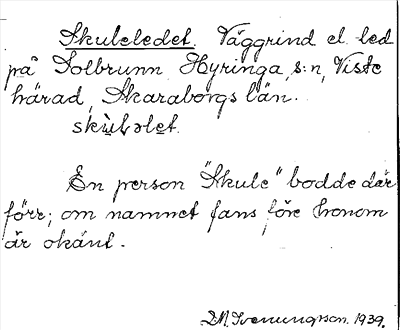 Skuleledet. Väggrind el. led
på Solbrunn Hyringa s:n, Viste
härad, Skaraborgs län.
skùləlet.
En person "Skule" bodde där
förr; om namnet fans före honom
är okänt.
D.N. Svenungson. 1939.